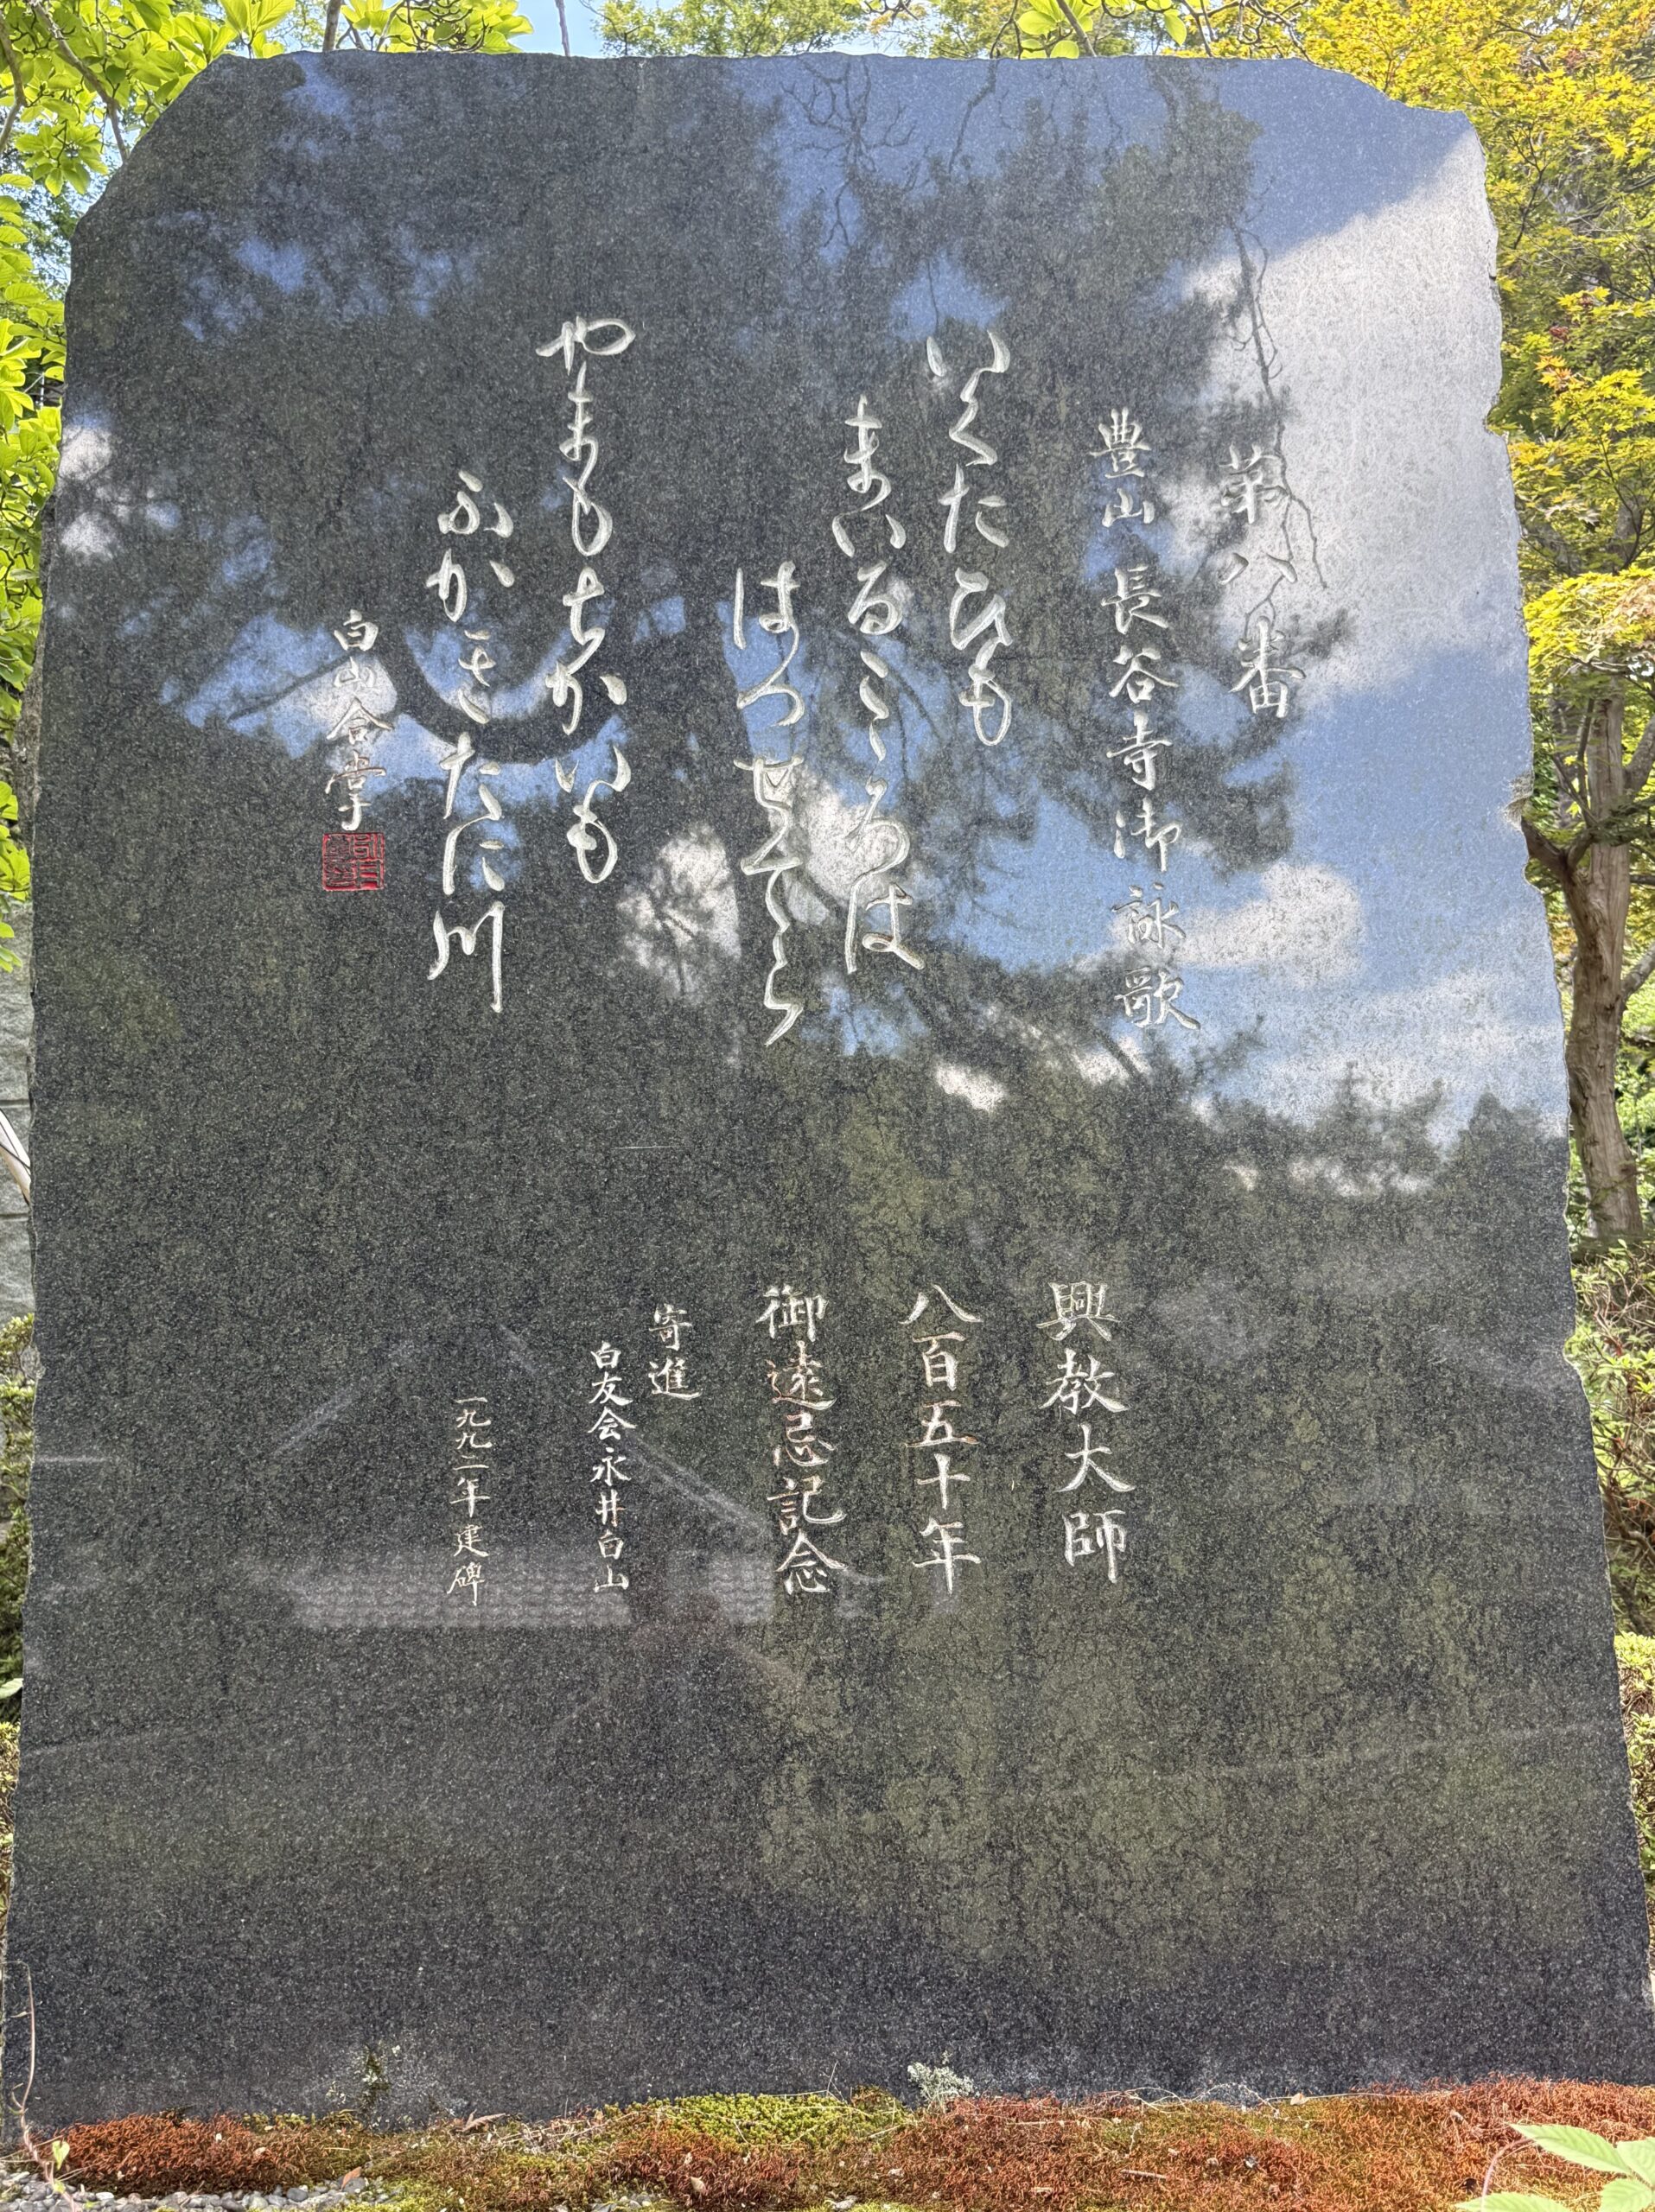 第八番
豊山 長谷寺御詠歌
いくたひも
まいるこころは
はつせてら
やまもちかいも
ふかきたに川
白山合掌
興教大師
八百五十年
御遠忌記念
寄進
白友会永井白山
一九九二年建碑